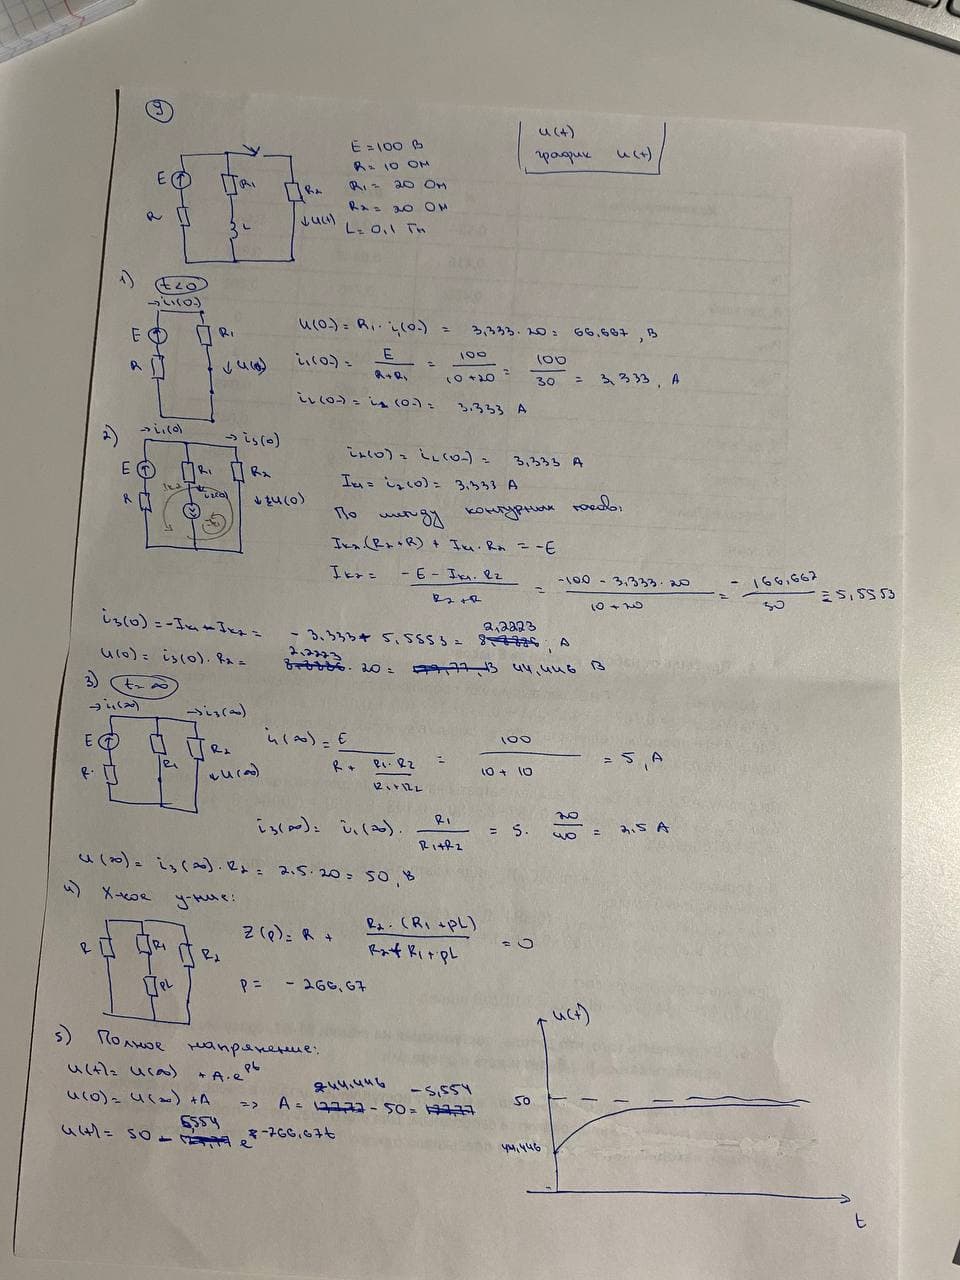 9
E = 100 В
R = 10 Ом
R1 = 20 Ом
R2 = 20 Ом
L = 0,1 Гн
u(t)
график u(t)
E
R
R1
L
R2
u(t)
1) t<0
→i1(0-)
E
R
R1
u(0-) = R1 · i1(0-) = 3,333 · 20 = 66,667, В
i1(0-) = E / (R+R1) = 100 / (10+20) = 100 / 30 = 3,333, А
iL(0-) = i2(0-) = 3,333 А
2) →i1(0)
→i3(0)
E
R
R1
R2
i2(0)
i2(0) = iL(0-) = 3,333 А
Iк1 = i2(0) = 3,333 А
По методу контурных токов:
Iк2(R2+R) + Iк1·R2 = -E
Iк2 = (-E - Iк1·R2) / (R2+R) = (-100 - 3,333·20) / (10+20) = - 166,667 / 30 = 5,5553
i3(0) = -Iк1 - Iк2 = - 3,333 + 5,5553 = 2,2223, А
u(0) = i3(0) · R2 = 2,2223 · 20 = 44,446 В
3) t=∞
→i1(∞)
→i3(∞)
E
R
R1
R2
u(∞)
i1(∞) = E / (R + R1·R2 / (R1+R2)) = 100 / (10+10) = 5, А
i3(∞) = i1(∞) · R1 / (R1+R2) = 5 · 20 / 40 = 2,5 А
u(∞) = i3(∞) · R2 = 2,5 · 20 = 50, В
4) Х-кое у-ние:
R
R1
pL
R2
Z(p) = R + R2 · (R1+pL) / (R2+R1+pL) = 0
p = - 266,67
5) Полное напряжение:
u(t) = u(∞) + A·e^pt
u(0) = u(∞) + A => A = 44,446 - 50 = -5,554
u(t) = 50 - 5,554 e^-266,67t
u(t)
50
44,446
t